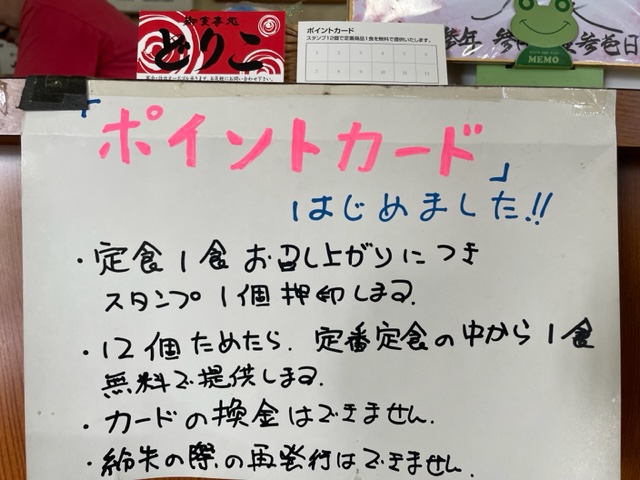 御食事処
どりこ
ポイントカード
スタンプ12個で定番商品1食を無料で提供いたします。
1 2 3 4 5 6
7 8 9 10 11 12
MEMO
「ポイントカード」
はじめました!!
・定食1食お召し上がりにつき
スタンプ1個押印しまる.
・12個ためたら、定番定食の中から1食
無料で提供しまる.
・カードの換金はできません.
・紛失の際の再発行はできません.